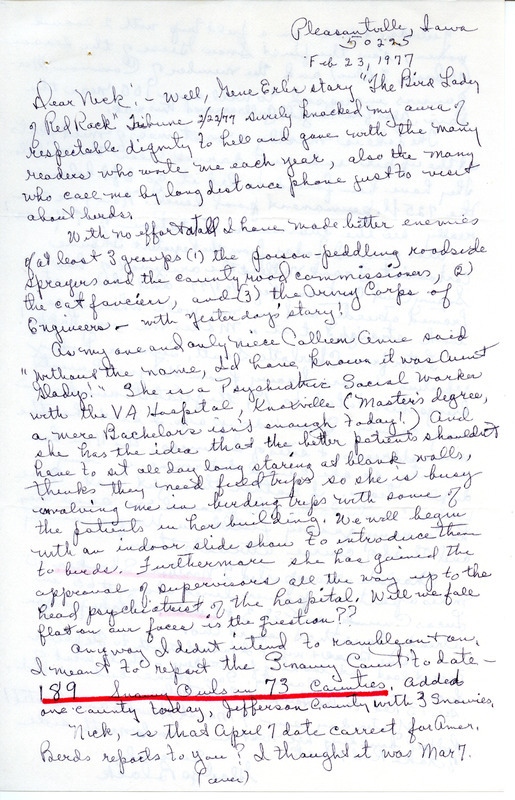 Pleasantville, Iowa
50225
Feb 23, 1977
Dear Nick! - Well, Gene Erb's story "The Bird Lady
of Red Rock" Tribune 2/22/77 surely knocked my aura of
respectable dignity to hell and gone with the many
readers who wrote me each year, also the many
who call me by long distance phone just to visit
about birds.
With no effort at all I have made bitter enemies
of at least 3 groups (1) the poison-peddling roadside
sprayers and the county road commissioners, (2)
the cat fanciers, and (3) the Army Corps of
Engineers - with yesterday's story!
As my one and only niece Calliem Anne said
"without the name, I'd have known it was Aunt
Gladys!" She is a Psychiatric Social Worker
with the VA Hospital, Knoxville (Master's degree,
a mere Bachelors isn't enough today!) And
she has the idea that the better patients shouldn't
have to sit all day long staring at blank walls,
thinks they need field trips so she is busy
involving me in birding trips with some of
the patients in her building. We will begin
with an indoor slide show to introduce them
to birds. Furthermore she has gained the
approval of supervisors all the way up to the
head psychiatrist of the hospital. Will we fall
flat on our faces is the question??
Anyway I didn't intend to ramble on.
I meant to report the Snowy Count to date -
189 Snowy Owls in 73 Counties. Added
one county today, Jefferson County with 3 Snowies.
Nick, is that April 7 date correct for Amer.
Birds reports to you? I thought it was Mar 7.
(over)